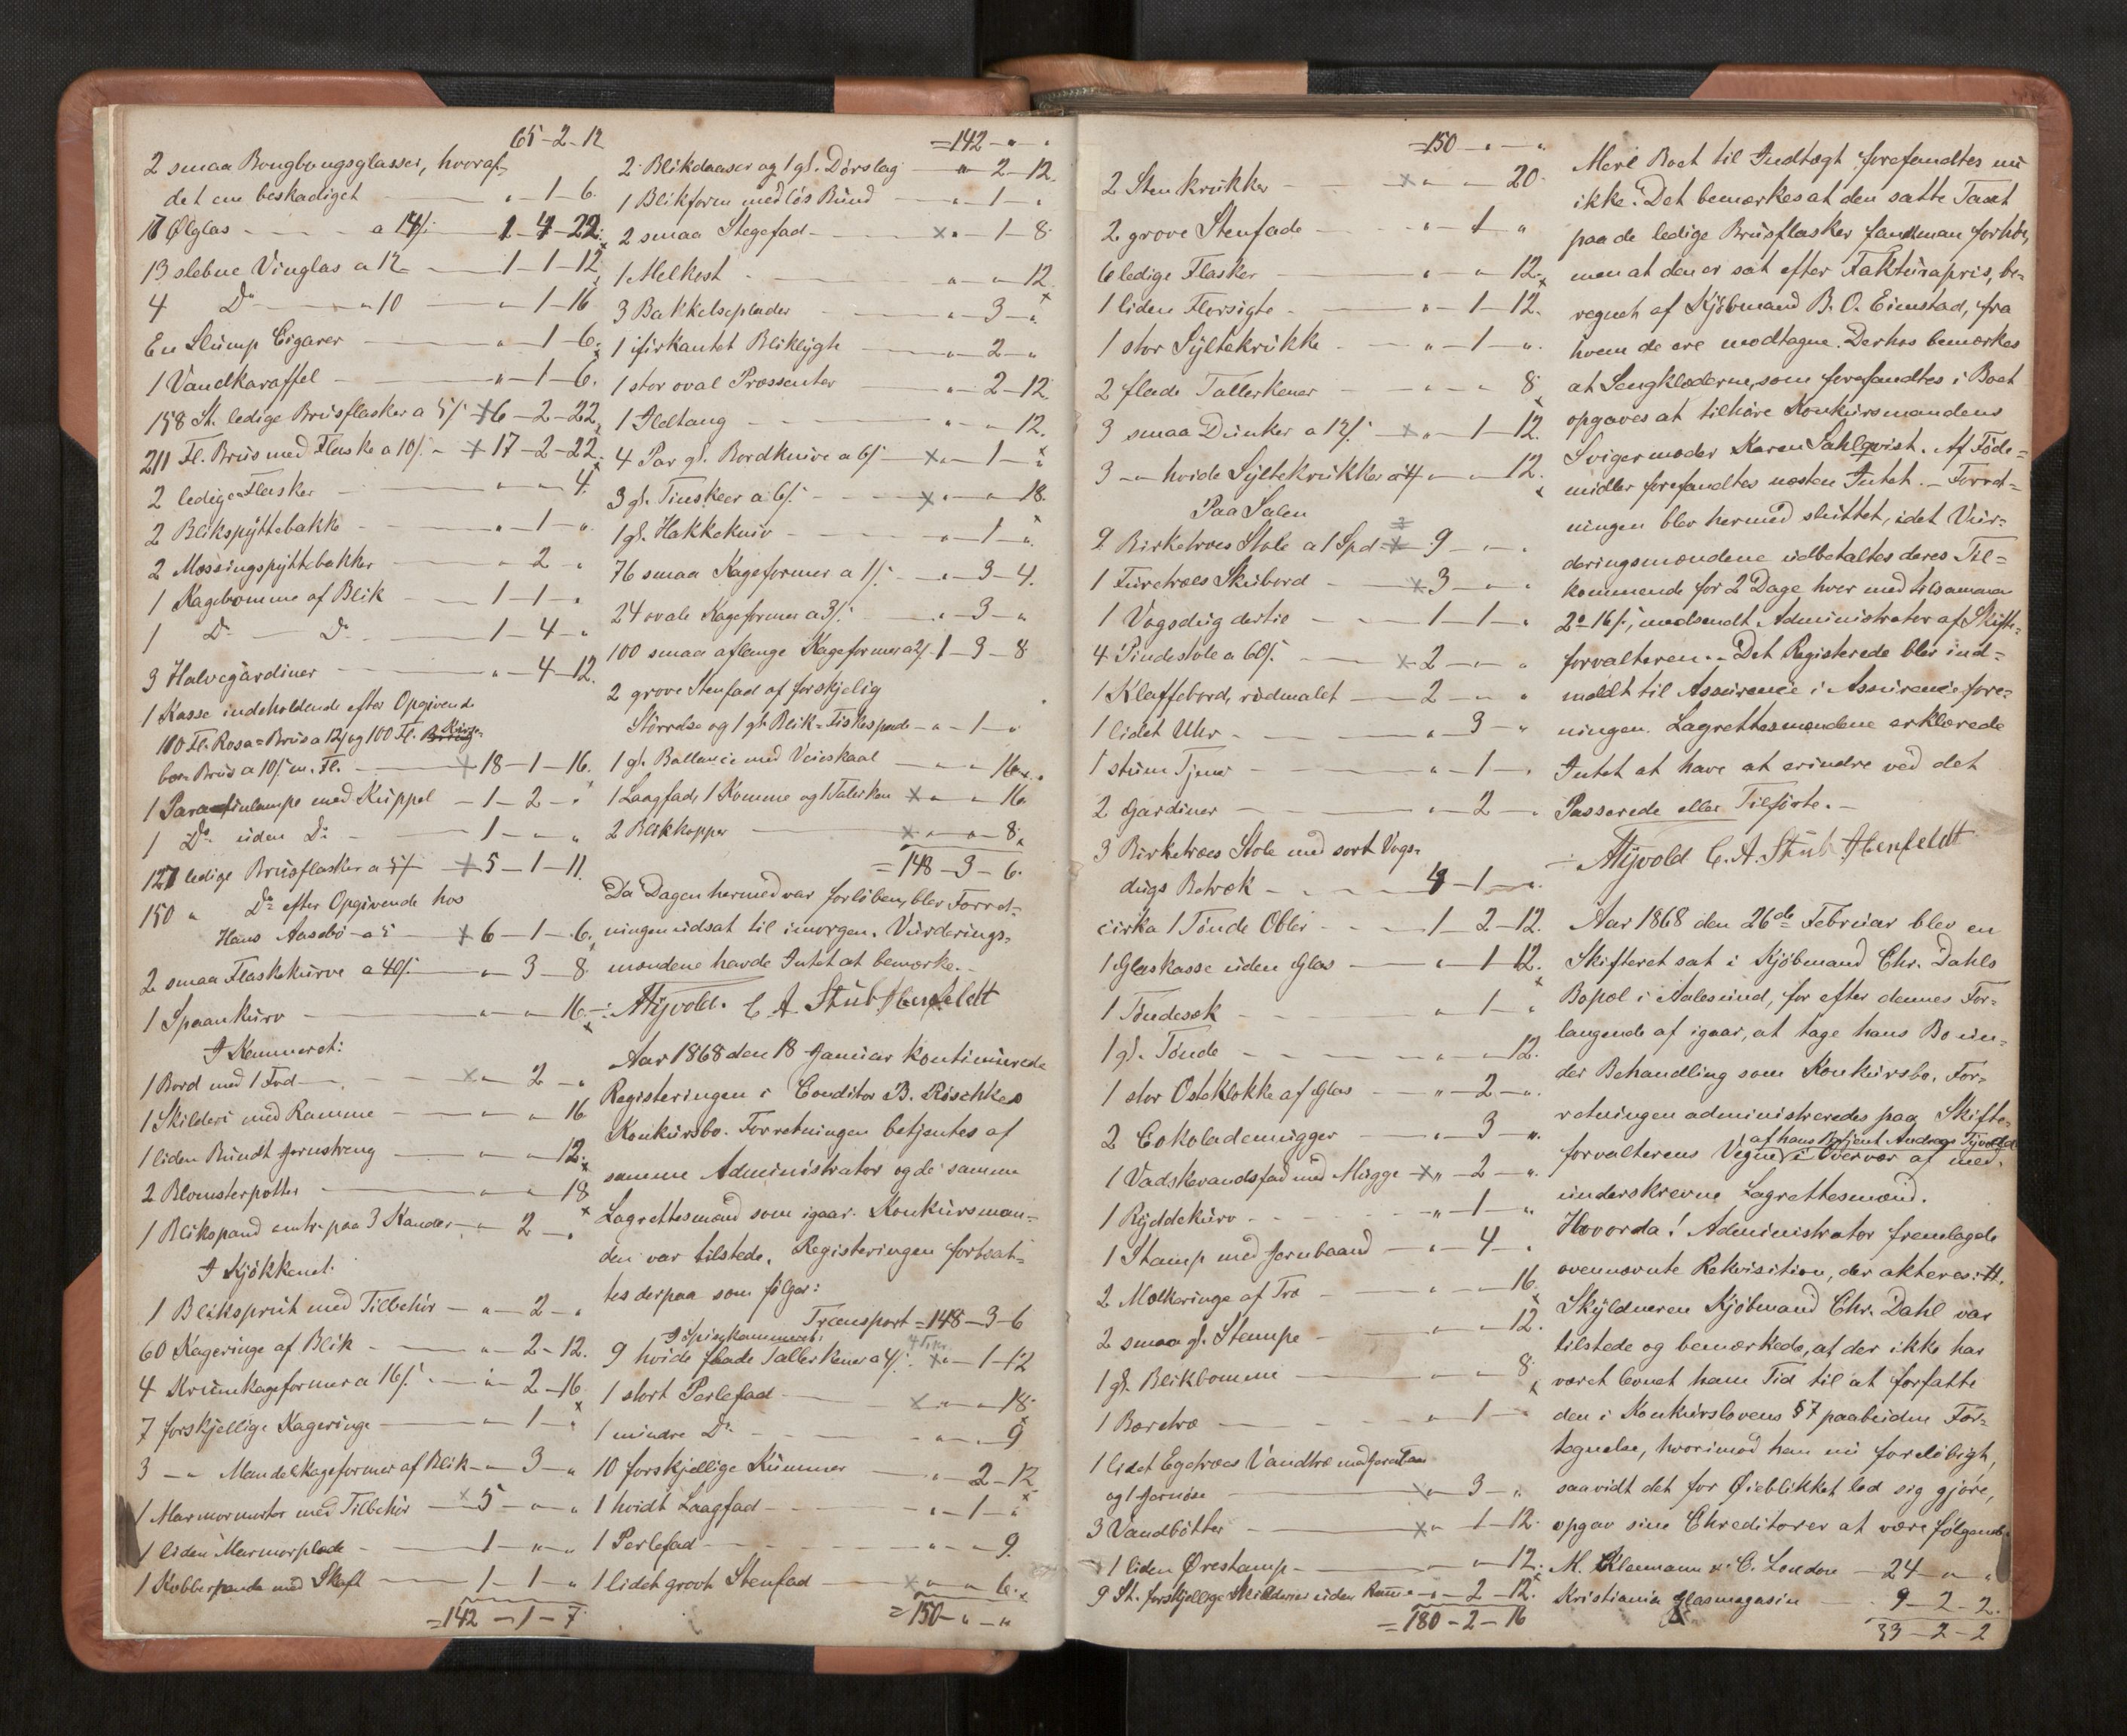 65-2-12
2 smaa Bongbongsglasser, hvoraf
det ene beskadiget — " - 1 - 6.
17 Ølglas - - - a 14/ - 1-4-22.
13 slebne Vinglas a 12 — 1-1-12
4 Do — " 10 — " - 1-16
En Slump Cigarer — " - 1-6.
1 Vandkaraffel — " - 1-6.
158 St. ledige Brusflasker a 5/ 6-2-22
211 Fl. Brus med Flaske a 10/. - 17-2-22.
2 ledige Flasker — " - " - 4.
2 Blikspyttebakke — " - 1 - "
2 Messingspyttebakker — " - 2 - "
1 Kagebomme af Blik — 1-1- "
1 Do — Do — 1-4- "
3 Halvegardiner — " - 4-12.
1 Kasse indeholdende efter Opgivende
100 Fl. Rosa=Brus a 12/ og 100 Fl. Kirse-
bær Brus a 10/. m. Fl. — 18-1-16.
1 Parafinlampe med Kuppel - 1-2- "
1 Do uden Do - 1 - " - "
127 ledige Brusflasker a 5/ 5-1-11.
150 " Do efter Opgivende hos
Hans Aasebø a 5 — 6-1-6.
2 smaa Flaskekurve a 40/. — " - 3-8.
1 Spaankurv — " - " - 16.
I Kammeret:
1 Bord med 1 Fod — " - 2 - "
1 Skilderi med Ramme — " - " - 16
1 liden Bundt Jernstreng — " - " - 12.
2 Blomsterpotter — " - " - 18
1 Blikspand omtr. paa 3 Kander — " - 2 - "
I Kjøkkenet:
1 Bliksprut med Tilbehör — " - 2 - "
60 Kageringe af Blik — " - 2-12.
4 Krumkageformer a 16/. — " - 2-16
7 forskjellige Kageringe — " - 1 - "
3 — " Mandelkageformer af Blik — " - 3 - "
1 Marmormorter med Tilbehör — 5 - " - "
1 liden Marmorplade — 1 - " - "
1 Kobberpande med Skaft — 1-1- "
=142-1-7
=142 - " - "
2 Blikdaaser og 1 gl. Dørslag — " - 2-12.
1 Blikform med løs Bund — " - 1 - "
2 smaa Stegefad — " - 1-8
1 Melkost — " - " - 12
3 Bakkelseplader — " - 3 - "
1 firkantet Bliklygte — " - 2 - "
1 stor oval Præssenter — " - 2-12.
1 Ildtang — " - " - 12.
4 Par gl. Bordknive a 6/ — " - 1 - "
3 gl. Tinskeer a 6/. — " - " - 18.
1 gl. Hakkekniv — " - 1 - "
76 smaa Kageformer a 1/. — " - 3-4.
24 ovale Kageformer a 3/. — " - 3 - "
100 smaa aflange Kageformer a 2/. 1-3-8
2 grove Stenfad af forskjelig
Størrelse og 1 gl. Blik=Fiskespade — " - 1 - "
1 gl. Ballance med Veieskaal — " - " - 16
1 Laagfad, 1 Komme og 1 Talerken — " - " - 16
2 Blikkopper — " - " - 8
=148-3-6.
Da Dagen hermed var forløben, blev Forret-
ningen udsat til imorgen. Vurderings-
mændene havde Intet at bemærke.
ATijvold. C. A. Stub Henfeldt
Aar 1868 den 18 Januar kontinuerede
Registeringen i Conditor B. Röschkes
Konkursbo. Forretningen betjentes af
samme Administrator og de samme
Lagrettesmænd som igaar. Konkursman-
den var tilstede. Registeringen fortsat-
tes derpaa som følger:
Transport =148-3-6
I Spisekammeret:
9 hvide flade Tallerkener a 4/. — " - 1-12
1 stort Perlefad — " - " - 18
1 mindre Do — " - " - 9
10 forskjellige Kummer — " - 2-12
1 hvidt Laagfad — " - 1 - "
1 Perlefad — " - " - 9.
1 lidet grovt Stenfad — " - " - 6.
=150 - " - "
=150 - " - "
2 Stenkrukker — " - " - 20.
2 grove Stenfade — " - 1 - "
6 ledige Flasker — " - " - 12.
1 liden Florsigte — " - 1-12.
1 stor Syltekrukke — " - 1 - "
2 flade Tallerkener — " - " - 8
3 smaa Dunker a 12/. — " - 1-12.
3 — " hvide Syltekrukker a 4 — " - " - 12.
Paa Salen
9 Birketræes Stole a 1 Spd. 9 - " - "
1 Furetræes Skibord — 3 - " - "
1 Vogsdug dertil — 1-1- "
4 Pindestole a 60/. — 2 - " - "
1 Klaffebord, rødmalet — 2 - " - "
1 lidet Uhr — " - 3 - "
1 stum Tjener — " - 1 - "
2 Gardiner — " - 2 - "
3 Birketræes Stole med sort Vogs-
dugs Betræk — 4-1- "
cirka 1 Tønde Oblei — 1-2-12.
1 Glaskasse uden Glas — " - 1-12.
1 Tøndesæk — " - 1 - "
1 gl. Tønde — " - " - 12.
1 stor Osteklokke af Glas — " - 2 - "
2 Cokolademugger — " - 3 - "
1 Vadskevandsfad med Mugge — " - 2 - "
1 Ryddekurv — " - 1 - "
1 Stamp med Jernbaand — " - 4 - "
2 Melkeringe af Træ — " - " - 16
2 smaa gl. Stampe — " - " - 12.
1 gl. Blikbomme — " - " - 8
1 Bæretræ — " - 1 - "
1 lidet Egetræes Vandtræ med
og 1 Jernøse — " - 3 - "
3 Vandbøtter — " - 1-12.
1 liden Ørestamp — " - " - 12.
9 St. forskjellige Skilderier uden Ramme — " - 2-12.
=180-2-16
Mere Boet til Indtægt forefandtes nu
ikke. Det bemærkes at den satte Taxt
paa de ledige Brusflasker fandt man for høi,
men at den er sat efter Fakturapris, be-
regnet af Kjøbmand B. O. Eimstad, fra
hvem de ere modtagne. Derhos bemærkes
at Sengklæderne, som forefandtes i Boet
opgaves at tilhøre Konkursmandens
Svigermoder Karen Sahlqvist. Af Føde-
midler forefandtes næsten Intet. — Forret-
ningen blev hermed sluttet, idet Vur-
deringsmændene udbetaltes deres Til-
kommende for 2 Dage hver med tilsammen
2 16/., medsendt Administrator af Skifte-
forvalteren. — Det Registerede blev ind-
meldt til Assurence i Assurencefore-
ningen. Lagrettesmændene erklærede
Intet at have at erindre ved det
Passerede eller Tilførte. —
ATijvold C. A. Stub Henfeldt
Aar 1868 den 26de Februar blev en
Skifteret sat i Kjøbmand Chr. Dahls
Bopæl i Aalesund, for efter dennes For-
langende af igaar, at tage hans Bo un-
der Behandling som Konkursbo. For-
retningen administreredes paa Skifte-
af hans Betjent Andreas Tijvold
forvalterens Vegne i Overvær af med-
underskrevne Lagrettesmænd.
Hvorda! Administrator fremlagde
ovennævnte Rekvisition, der akteres: H.
Skyldneren Kjøbmand Chr. Dahl var
tilstede og bemærkede, at der ikke har
været levnet ham Tid til at forfatte
den i Konkurslovens § 7 paabudne For-
tegnelse, hvorimod han nu foreløbigt,
saavidt det for Øieblikket lod sig gjøre,
opgav sine Chreditorer at være følgende
M. Kleemann & C. London — 24 - " - "
Kristiania Glasmagasin — 9-2-2.
33-2-2